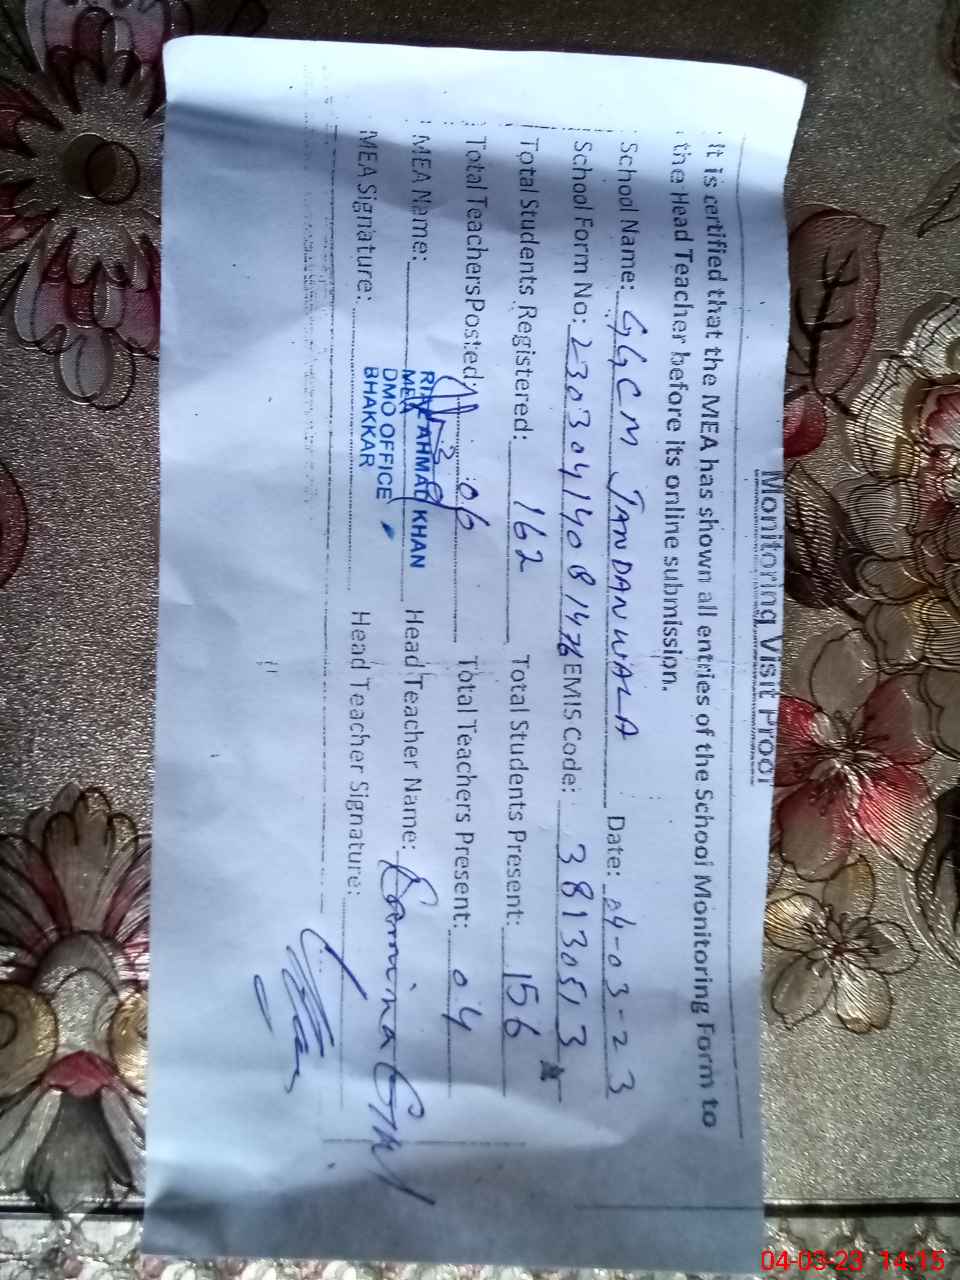 Monitoring Visit Proof
It is certified that the MEA has shown all entries of the School Monitoring Form to
the Head Teacher before its online submission.
School Name: GGCM JANDANWALA Date: 04-03-23
School Form No: EMIS Code: 38130513
Total Students Registered: 162 Total Students Present: 156
Total Teachers Posted: 06 Total Teachers Present: 04
MEA Name: Head Teacher Name:
MEA Signature: Head Teacher Signature:
AHMAD KHAN
MEA
DMO OFFICE
BHAKKAR
04-03-23 14:15